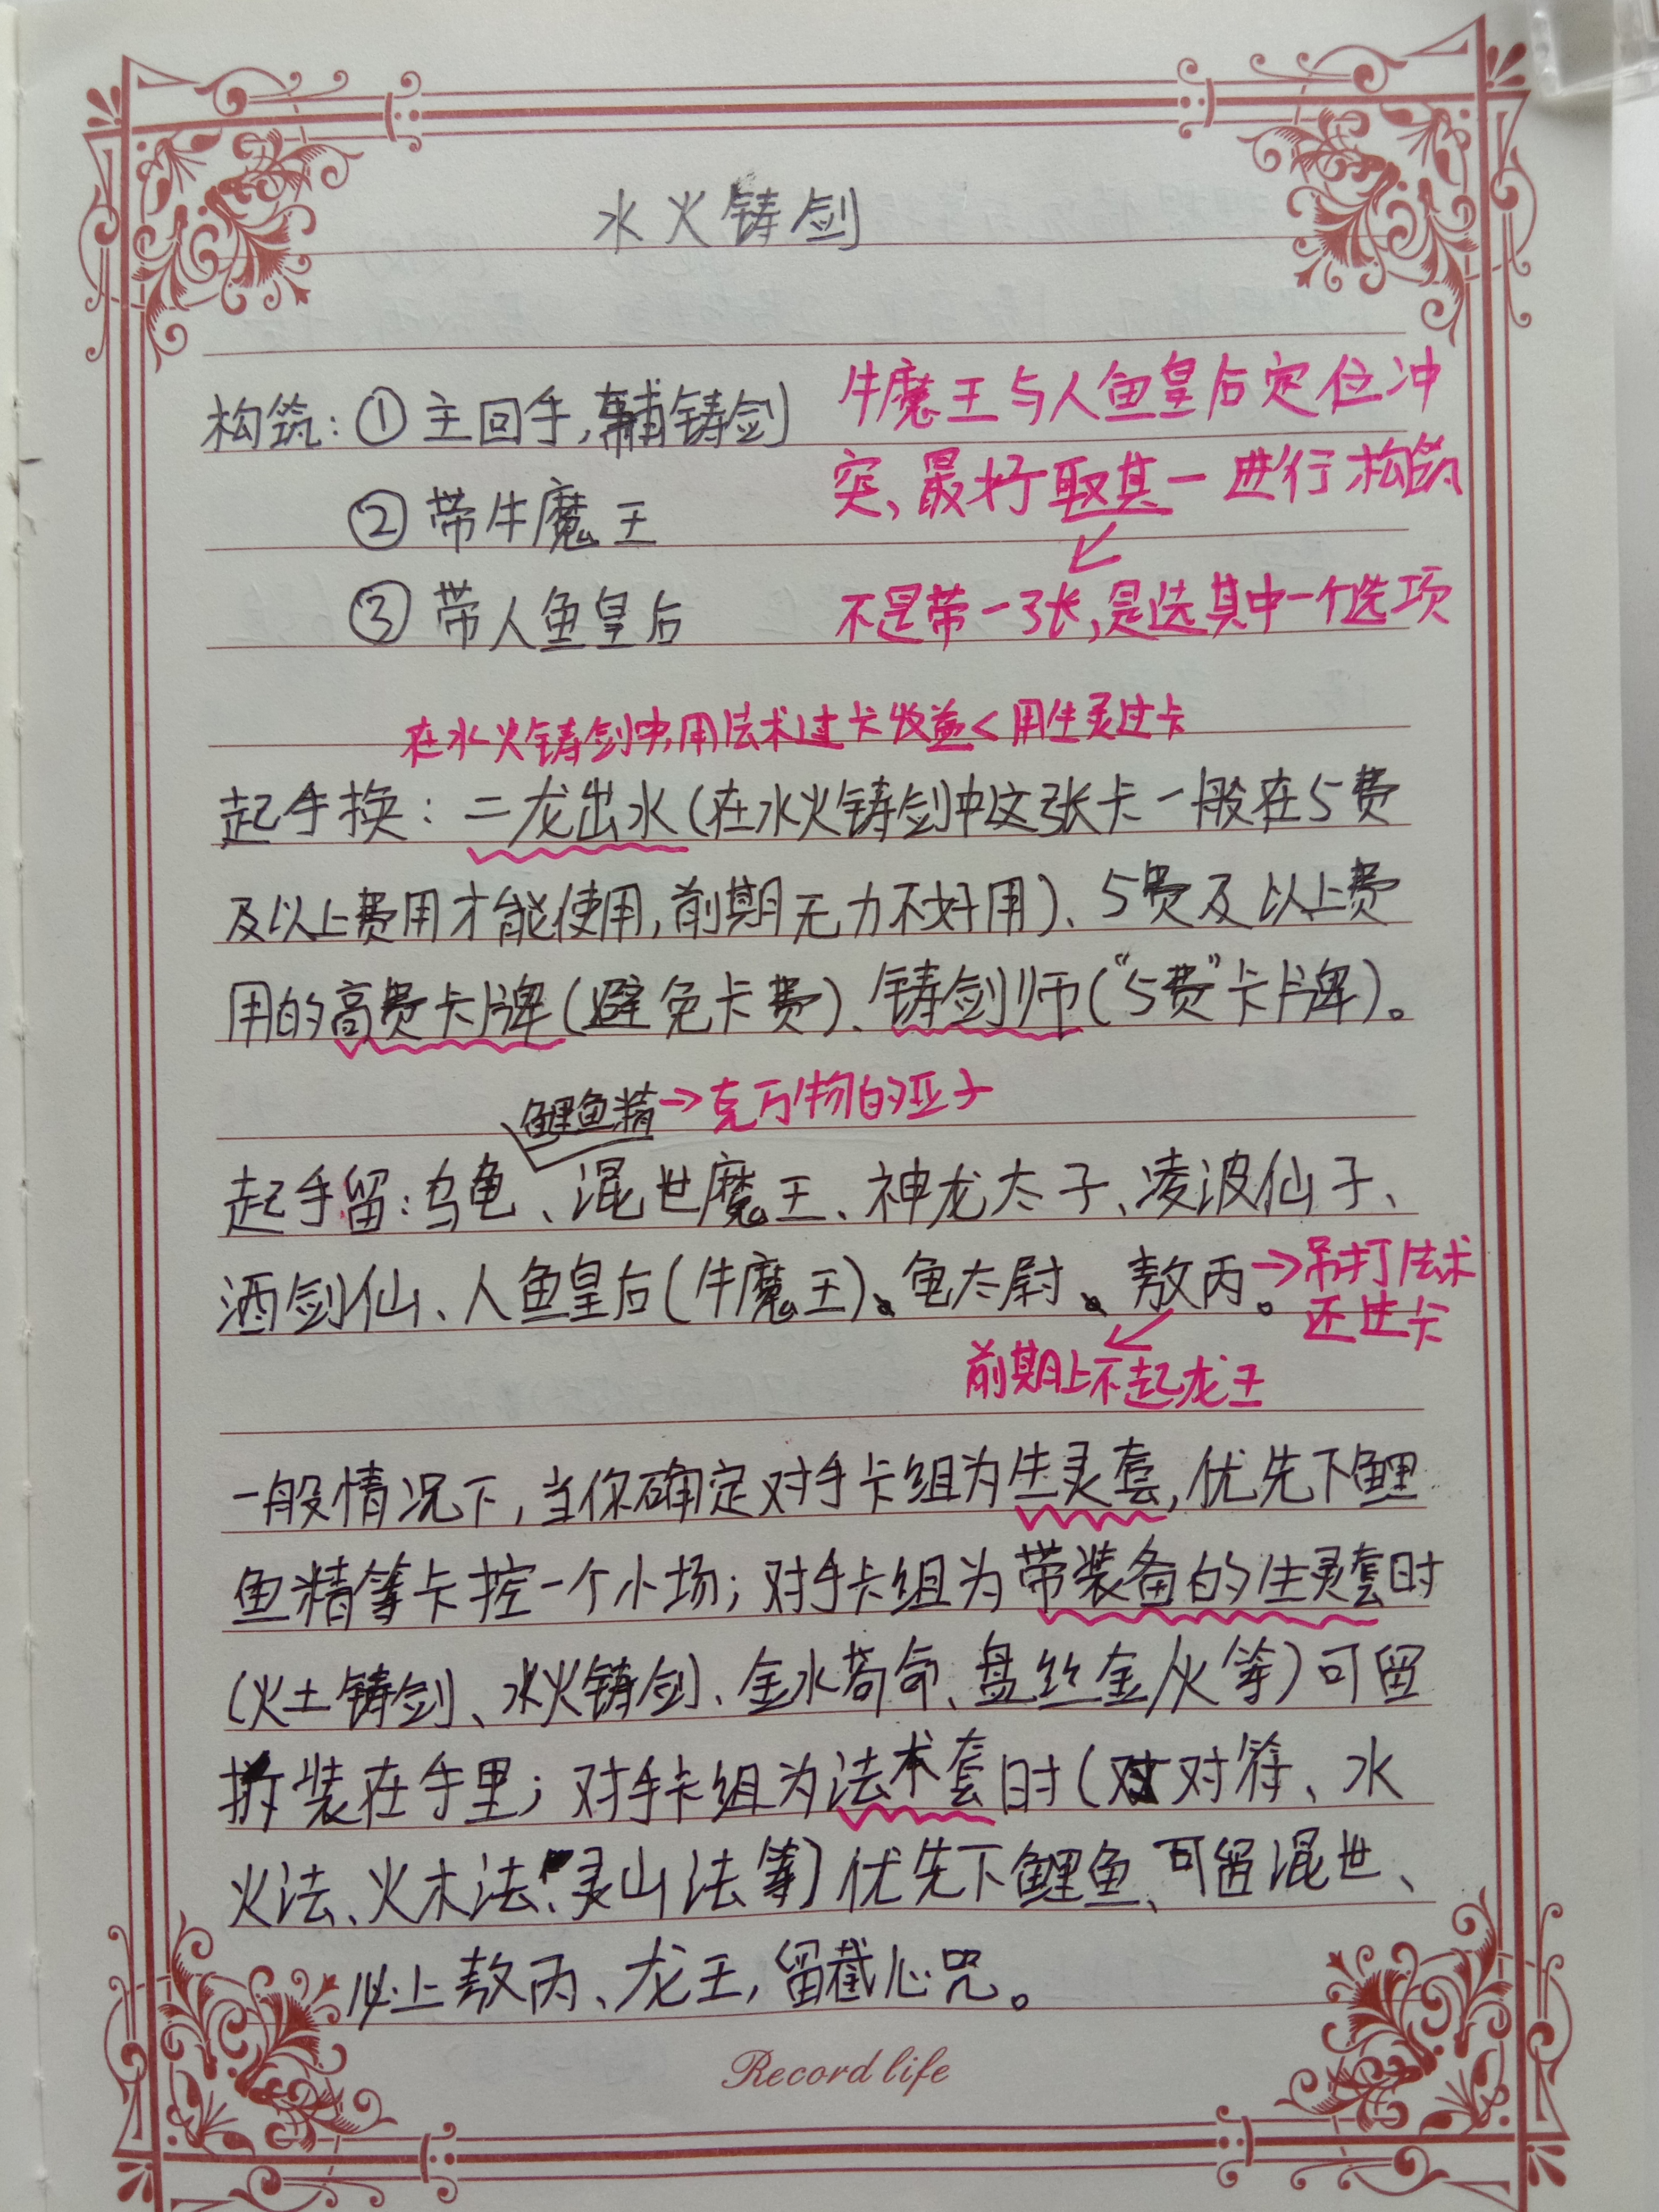 水火铸剑
构筑：①主回手，辅铸剑
牛魔王与人鱼皇后定位冲
突、最好取其一进行构筑
②带牛魔王
③带人鱼皇后
不是带一张，是选其中一个选项
在水火铸剑中，用法术过卡收益<用生灵过卡
起手换：二龙出水（在水火铸剑中这张卡一般在5费
及以上费用才能使用，前期无力不好用）、5费及以上费
用的高费卡牌（避免卡费）、铸剑师（“5费”卡牌）。
鲤鱼精→克万物的亚子
起手留：乌龟、混世魔王、神龙太子、凌波仙子、
酒剑仙、人鱼皇后（牛魔王）、龟太尉、敖丙。→吊打法术
还过卡
前期上不起龙王
一般情况下，当你确定对手卡组为生灵套，优先下鲤
鱼精等卡控一个小场；对手卡组为带装备的生灵套时
（火土铸剑、水火铸剑、金水苟命、盘丝金火等）可留
拆装在手里；对手卡组为法术套时（对对符、水
火法、火木法、灵山法等）优先下鲤鱼、可留混世、
必上敖丙、龙王，留截心咒。
Record life